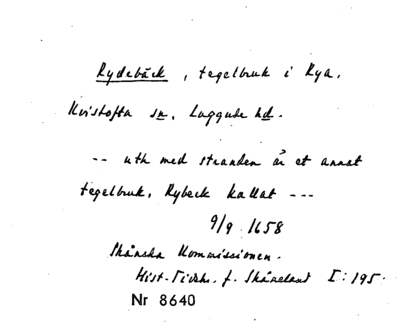 Rydebäck, tegelbruk i Rya.
Kvistofta sn, Luggude hd.
-- uth med stranden är et annat
tegelbruk, Rybeck kallat ---
9/9 1658
Skånska Kommissionen.
Hist. Tidskr. f. Skåneland I:195.
Nr 8640